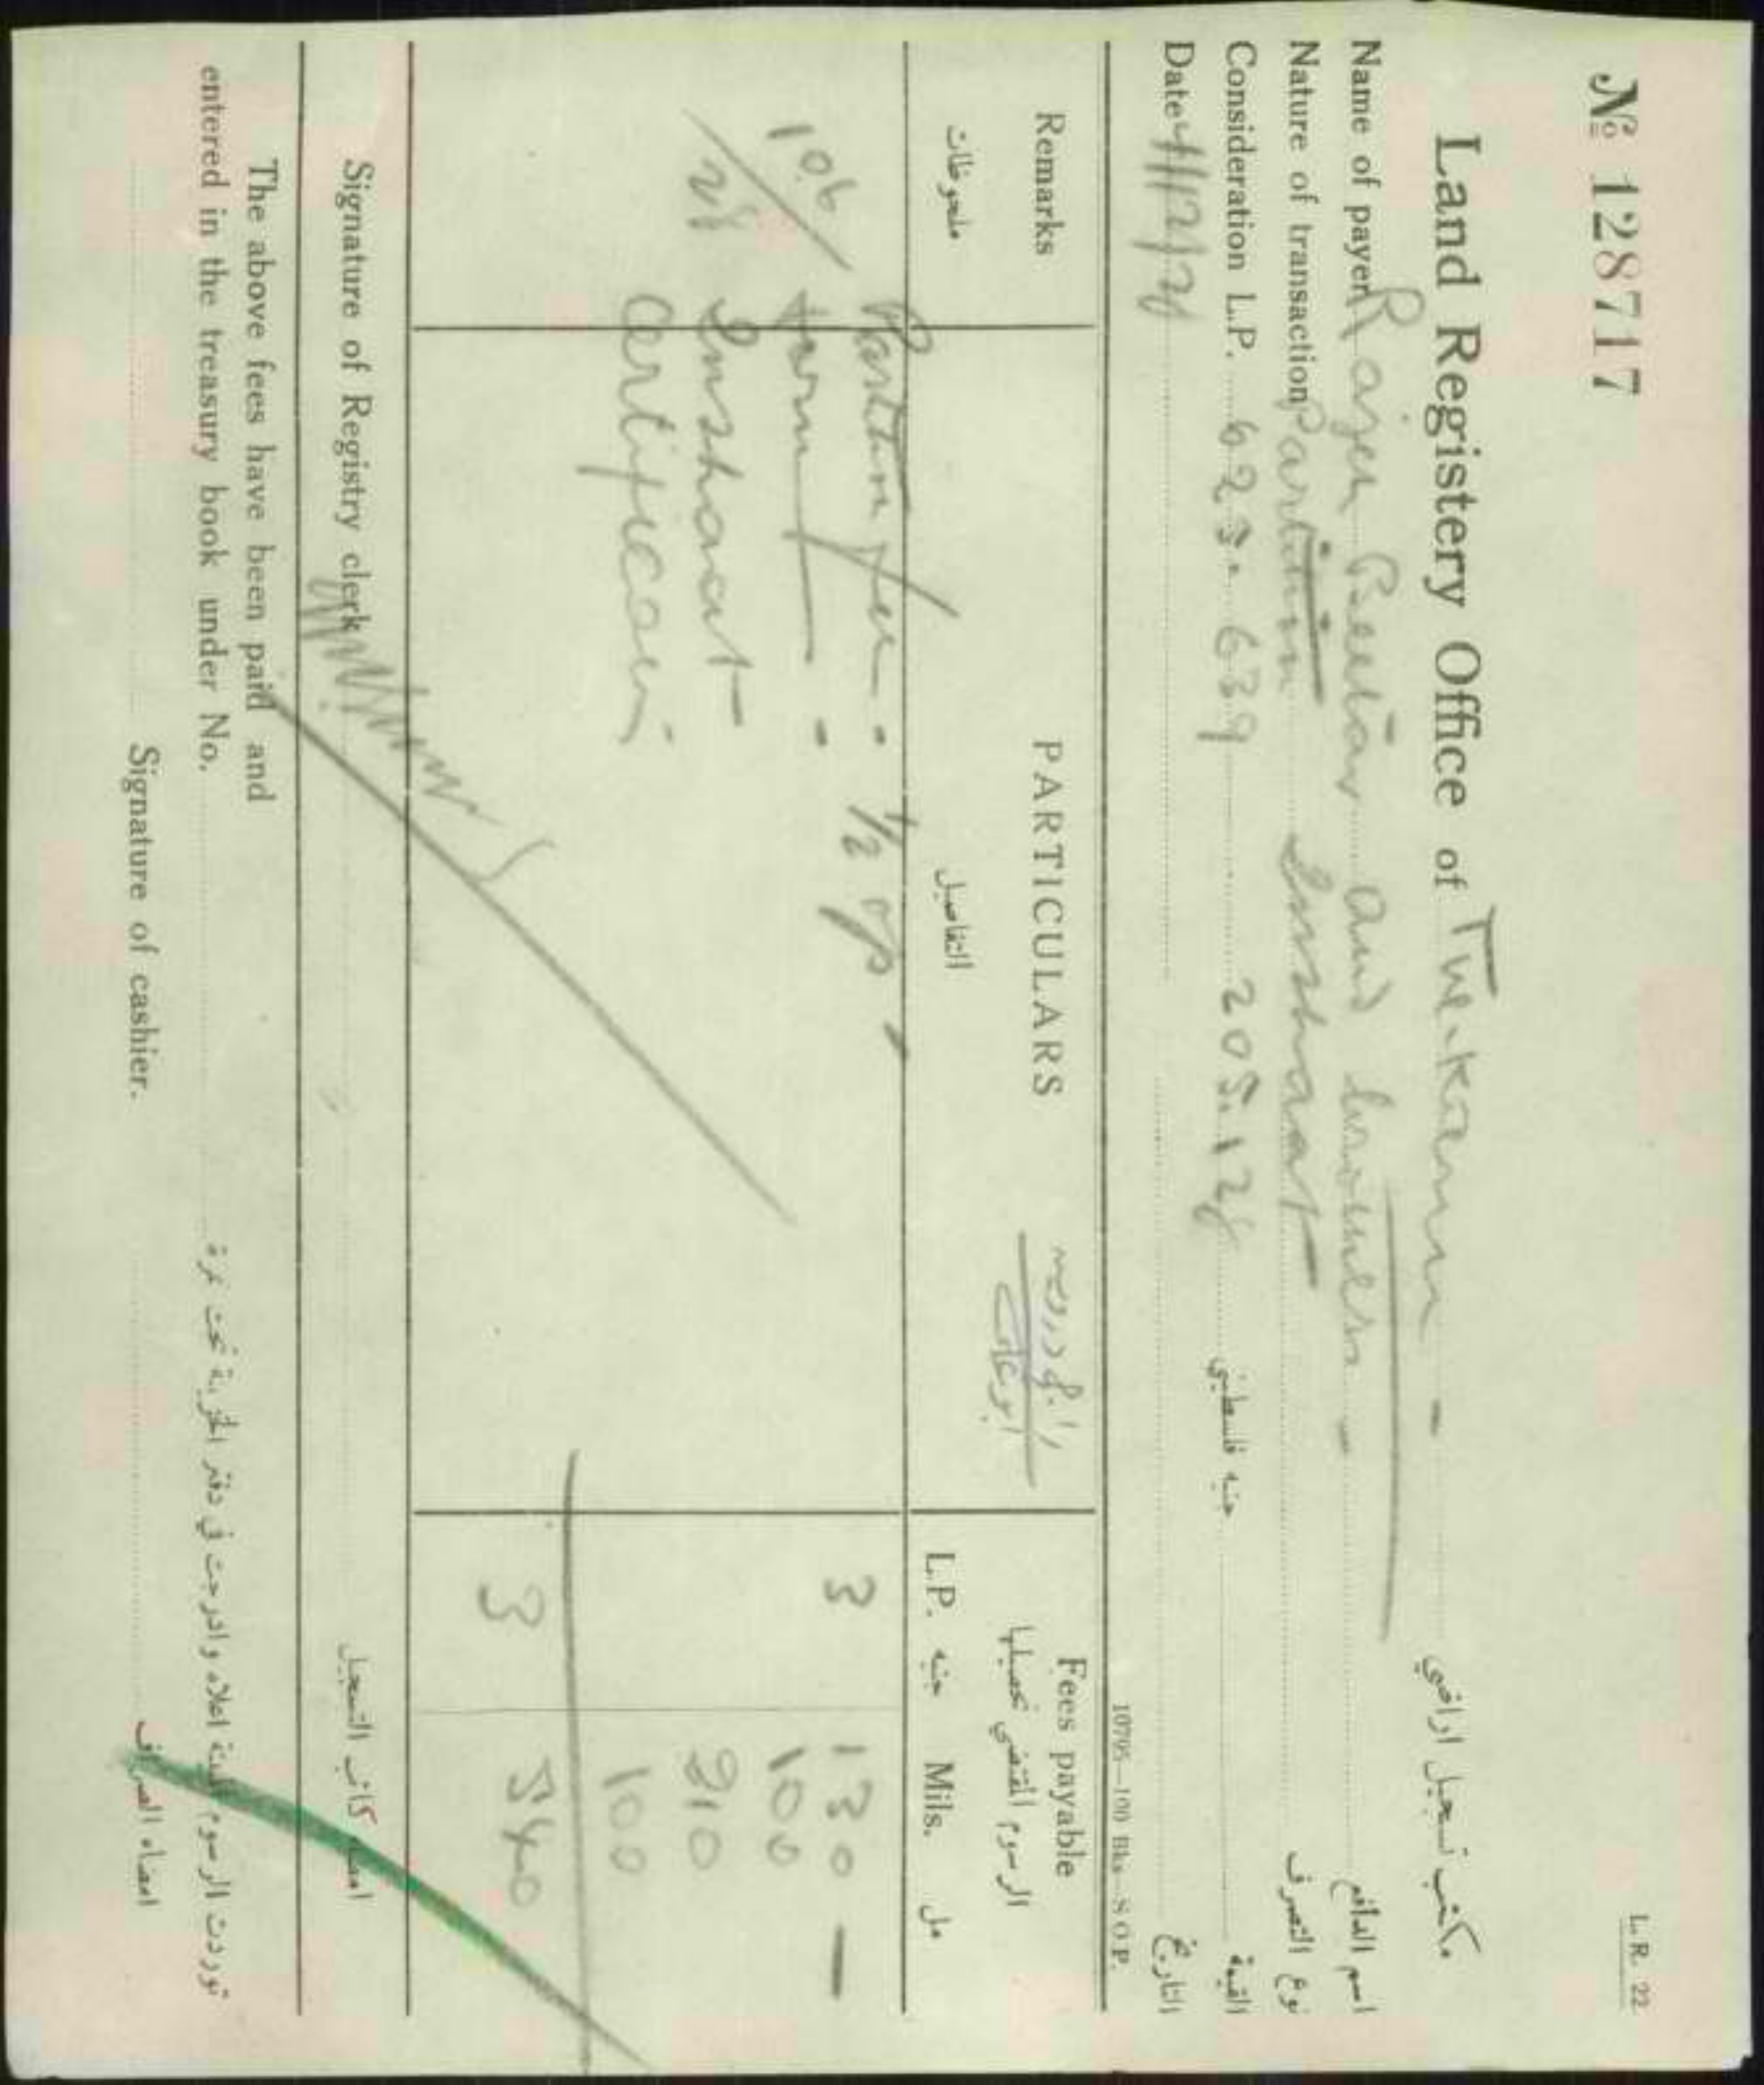 No 128717
L. R. 22.
Land Registery Office of Tulkarem - مكتب تسجيل اراضي
Name of payer and brothers - اسم الدافع
Nature of transaction Partition نوع التصرف
Consideration L.P. 623. 639 205.128 جنيه فلسطيني القيمة
Date 4/12/28 التاريخ
10705—100 Bks—S.O.P.
Remarks PARTICULARS Fees payable
ملحوظات التفاصيل الرسوم المقتضي تحصيلها
L.P. جنيه Mils. مل
Partition fee - 1/2 % 3 130 -
106/28 Form - 100
210
Certificate 100
3 540
Signature of Registry clerk امضاء كاتب التسجيل
The above fees have been paid and
entered in the treasury book under No. توردت الرسوم المبينة اعلاه وادرجت في دفتر الخزينة تحت نمرة
Signature of cashier. امضاء الصراف